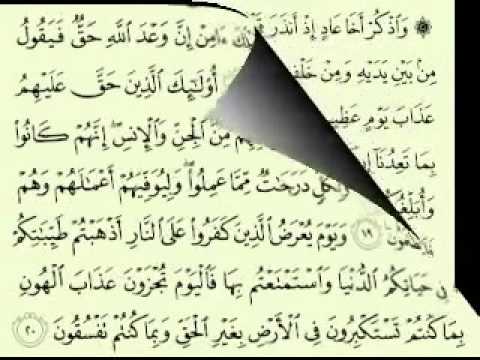 ۞ وَٱذْكُرْ أَخَا عَادٍ إِذْ أَنذَرَ ءَامِنْ إِنَّ وَعْدَ ٱللَّهِ حَقٌّ فَيَقُولُ
مِنۢ بَيْنِ يَدَيْهِ وَمِنْ أُو۟لَـٰٓئِكَ ٱلَّذِينَ حَقَّ عَلَيْهِمُ
عَذَابَ يَوْمٍ مِّنَ ٱلْجِنِّ وَٱلْإِنسِ إِنَّهُمْ كَانُوا۟
بِمَا تَعِدُنَآ وَلِكُلٍّ دَرَجَـٰتٌ مِّمَّا عَمِلُوا۟ وَلِيُوَفِّيَهُمْ أَعْمَـٰلَهُمْ وَهُمْ
١٩ وَيَوْمَ يُعْرَضُ ٱلَّذِينَ كَفَرُوا۟ عَلَى ٱلنَّارِ أَذْهَبْتُمْ طَيِّبَـٰتِكُمْ
فِى حَيَاتِكُمُ ٱلدُّنْيَا وَٱسْتَمْتَعْتُم بِهَا فَٱلْيَوْمَ تُجْزَوْنَ عَذَابَ ٱلْهُونِ
بِمَا كُنتُمْ تَسْتَكْبِرُونَ فِى ٱلْأَرْضِ بِغَيْرِ ٱلْحَقِّ وَبِمَا كُنتُمْ تَفْسُقُونَ ٢٠